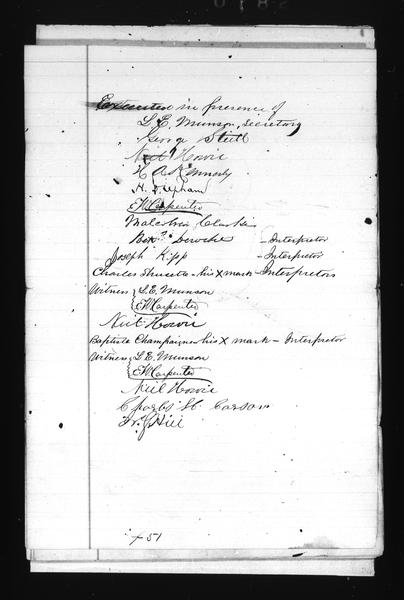 Executed in presence of
L. E. Munson, Secretary
George Steell
Neil Howie
H. D. Upham
E W Carpenter
Malcolm Clarke
Benj. Deroche - Interpreter
Joseph Kipp - Interpreter
Charles his X mark - Interpreters
Witness L. E. Munson
E W Carpenter
Neil Howie
Baptiste Champaigne his X mark - Interpretor
Witness L. E. Munson
E W Carpenter
Neil Howie
Charles H. Carson
Hill
51